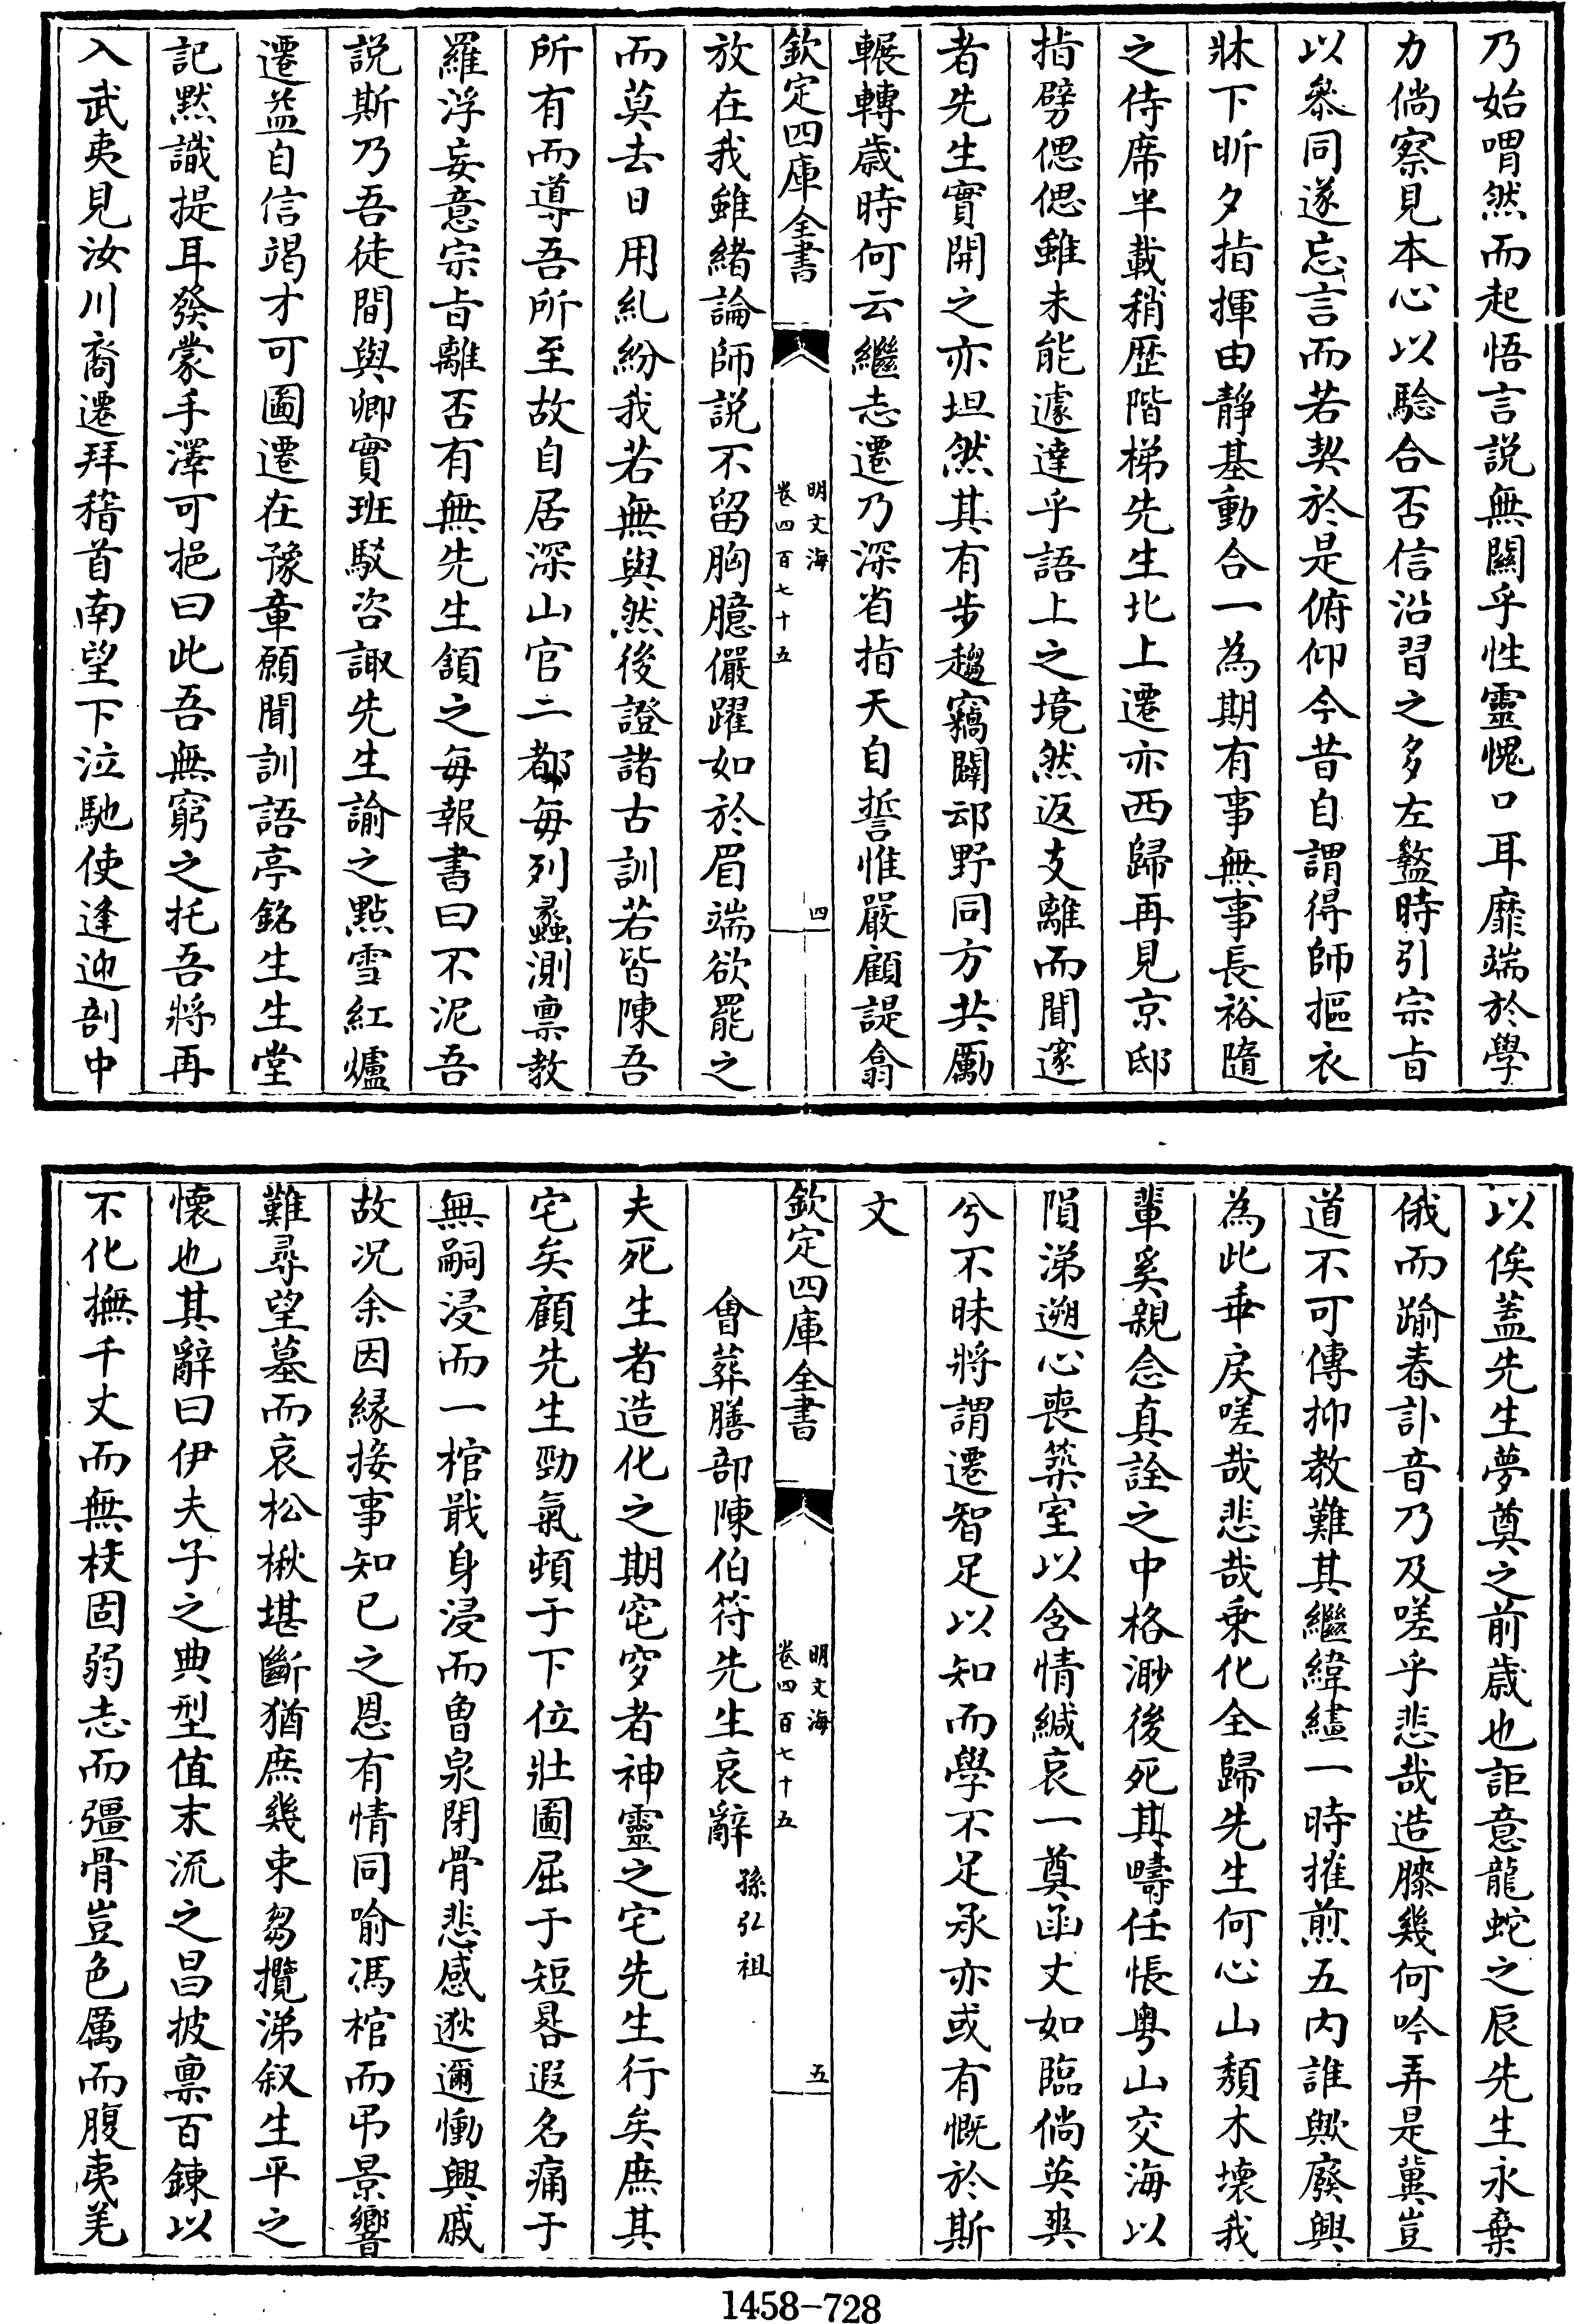 乃始喟然而起悟言説無關乎性靈愧口耳靡端於學
力倘察見本心以騐合否信沿習之多左盭時引宗㫖
以叅同遂忘言而若契於是俯仰今昔自謂得師摳衣
牀下昕夕指揮由靜基動合一為期有事無事長裕隨
之侍席半載稍歴階梯先生北上遷亦西歸再見京邸
指劈偲偲雖未能遽達乎語上之境然返支離而聞邃
者先生實開之亦坦然其有步趨竊闢邪野同方共勵
輾轉歲時何云繼志遷乃深省指天自誓惟嚴顧諟翕
欽定四庫全書
明文海
卷四百七十五
四
放在我雖緒論師説不留胸臆儼躍如於眉端欲罷之
而莫去日用糺紛我若無與然後證諸古訓若皆陳吾
所有而導吾所至故自居深山官二都每列蠡測禀教
羅浮妄意宗㫖離否有無先生頷之每報書曰不泥吾
説斯乃吾徒間與卿實班駁咨諏先生諭之點雪紅爐
遷益自信竭才可圖遷在豫章願聞訓語亭銘生生堂
記黙識提耳發蒙手澤可挹曰此吾無窮之托吾將再
入武夷見汝川裔遷拜稽首南望下泣馳使逢迎剖中
以俟蓋先生夢奠之前歲也詎意龍蛇之辰先生永棄
俄而踰春訃音乃及嗟乎悲哉造膝幾何吟弄是冀豈
道不可傳抑教難其繼緯繣一時摧煎五内誰歟廢興
為此乖戾嗟哉悲哉乗化全歸先生何心山頽木壊我
輩奚親念真詮之中格渺後死其疇任悵粤山交海以
隕涕遡心喪築室以含情緘哀一奠函丈如臨倘英爽
兮不昧將謂遷智足以知而學不足承亦或有慨於斯
文
欽定四庫全書
明文海
卷四百七十五
五
會葬膳部陳伯符先生哀辭 孫弘祖
夫死生者造化之期窀穸者神靈之宅先生行矣庶其
宅矣顧先生勁氣頓于下位壯圖屈于短晷遐名痛于
無嗣浸而一棺戢身浸而魯泉閉骨悲感逖邇慟興戚
故况余因緣接事知已之恩有情同喻馮棺而弔景響
難尋望墓而哀松楸堪斷猶庶幾束芻攬涕叙生平之
懷也其辭曰伊夫子之典型值末流之昌披禀百鍊以
不化撫千丈而無枝固弱志而彊骨豈色厲而腹夷羌
1458-728